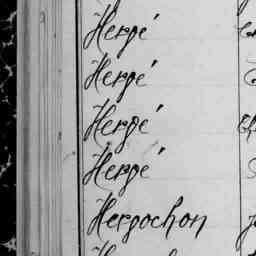 Hergé
Hergé
Hergé
Hergé
Hergochon